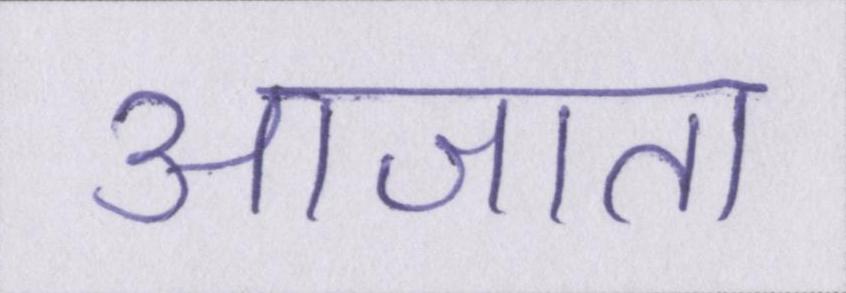 आजाता